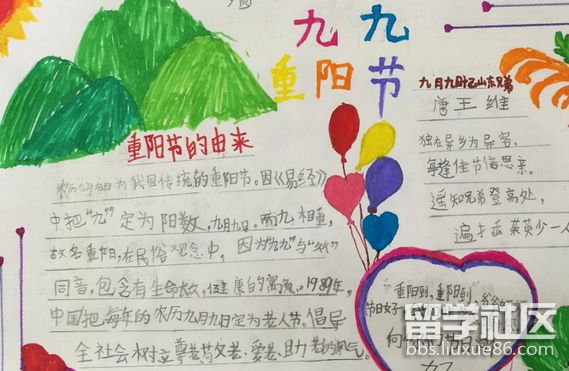 九九
重阳节
重阳节的由来
农历九月九日为我国传统的重阳节。因《易经》
中把“九”定为阳数，九月九日，两九相重，
故名重阳，在民俗观念中，因为“九九”与“久久”
同音，包含有生命长久，健康的寓意。1989年，
中国把每年的农历九月九日定为老人节。倡导
全社会树立尊老敬老、爱老、助老的风气。
九月九日忆山东兄弟
唐 王维
独在异乡为异客，
每逢佳节倍思亲。
遥知兄弟登高处，
遍插茱萸少一人
“重阳到，重阳到，
节日好
留学社区
bbs.liuxue86.com